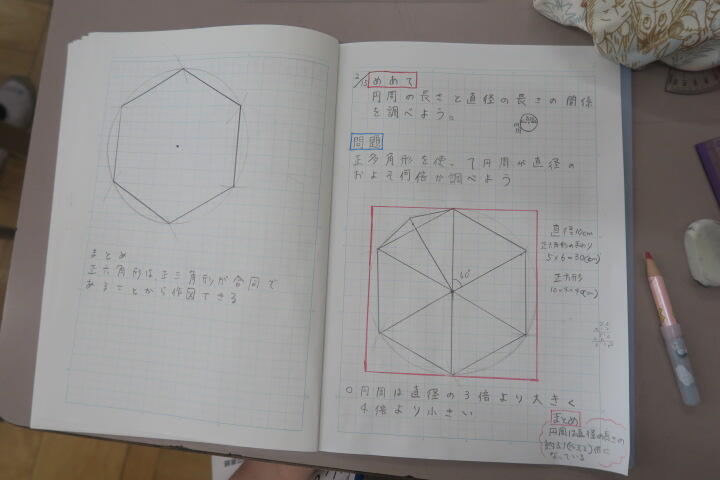 まとめ
正六角形は、正三角形が合同で
あることから作図できる
2/13 めあて
円周の長さと直径の長さの関係
を調べよう。
問題
正多角形を使って円周が直径の
およそ何倍か調べよう
60°
直径10cm
正六角形のまわり
5×6=30(cm)
正方形
10×4=40(cm)
○円周は直径の3倍より大きく
4倍より小さい
まとめ
円周は直径の長さの
倍に
なっている